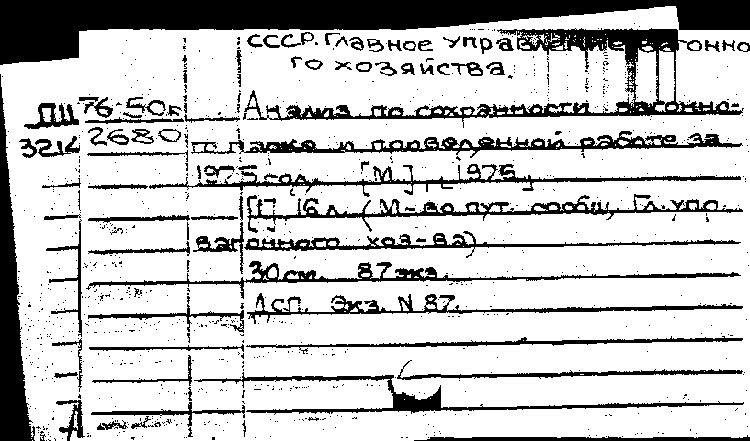 СССР. Главное управление вагонно
го хозяйства.
ПЩ 76-50к Анализ по сохранности вагонно-
3214 2680 го парка и проведенной работе за
1975 год. [М.], [1975]
[1], 16 л. (М-во пут. сообщ, Гл. упр.
вагонного хоз-ва).
30 см. 87 экз.
Дсп. Экз. N 87.
А